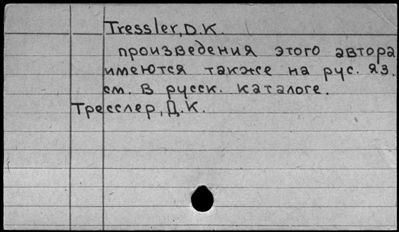 Tressler, D.K.
произведения этого автора
имеются также на рус. яз.
см. в русск. каталоге.
Тресслер, Д.К.